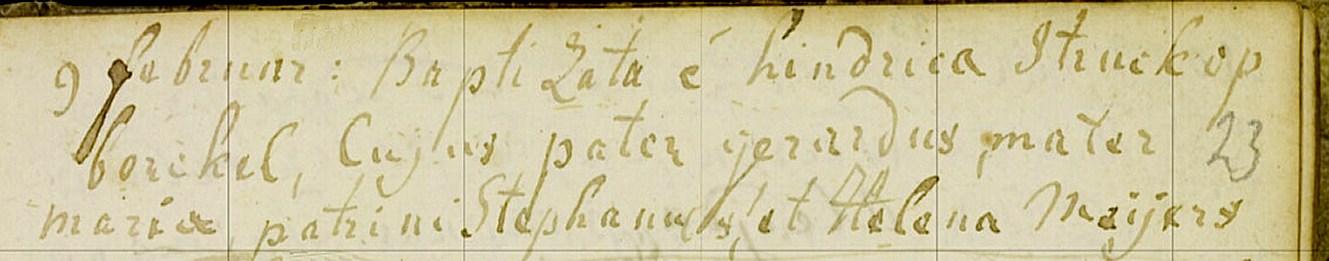 9 februar: BaptiZata é hindrica Struck op
borckel, Cujus pater gerardus, mater 23
maria, patrini Stephanus, et Helena Meijers